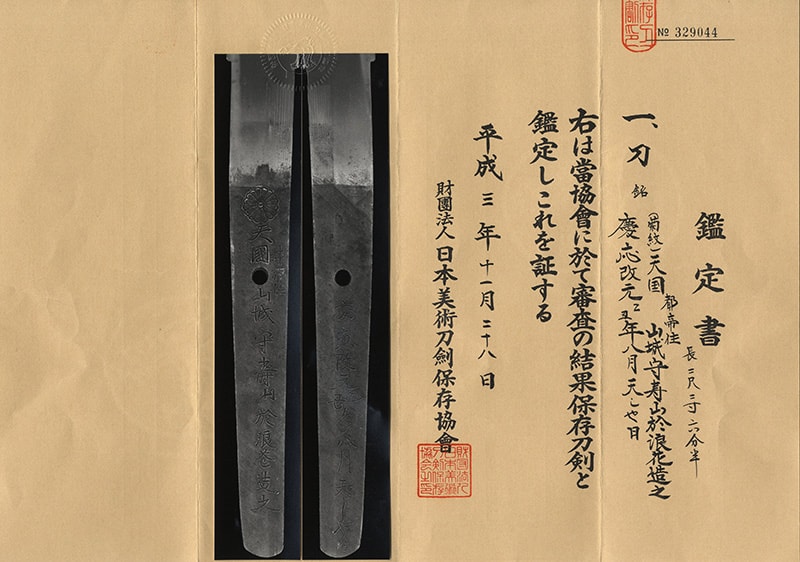 № 329044
鑑定書
一、刀
長二尺三寸六分半
銘
(菊紋)一天国
都帝住
山城守寿山於浪花造之
慶応改元乙丑年八月
日
右は當協會に於て審査の結果保存刀剣と
鑑定しこれを証する
平成三年十一月二十八日
財團法人日本美術刀劍保存協會
天國
山城守寿山於浪花造之